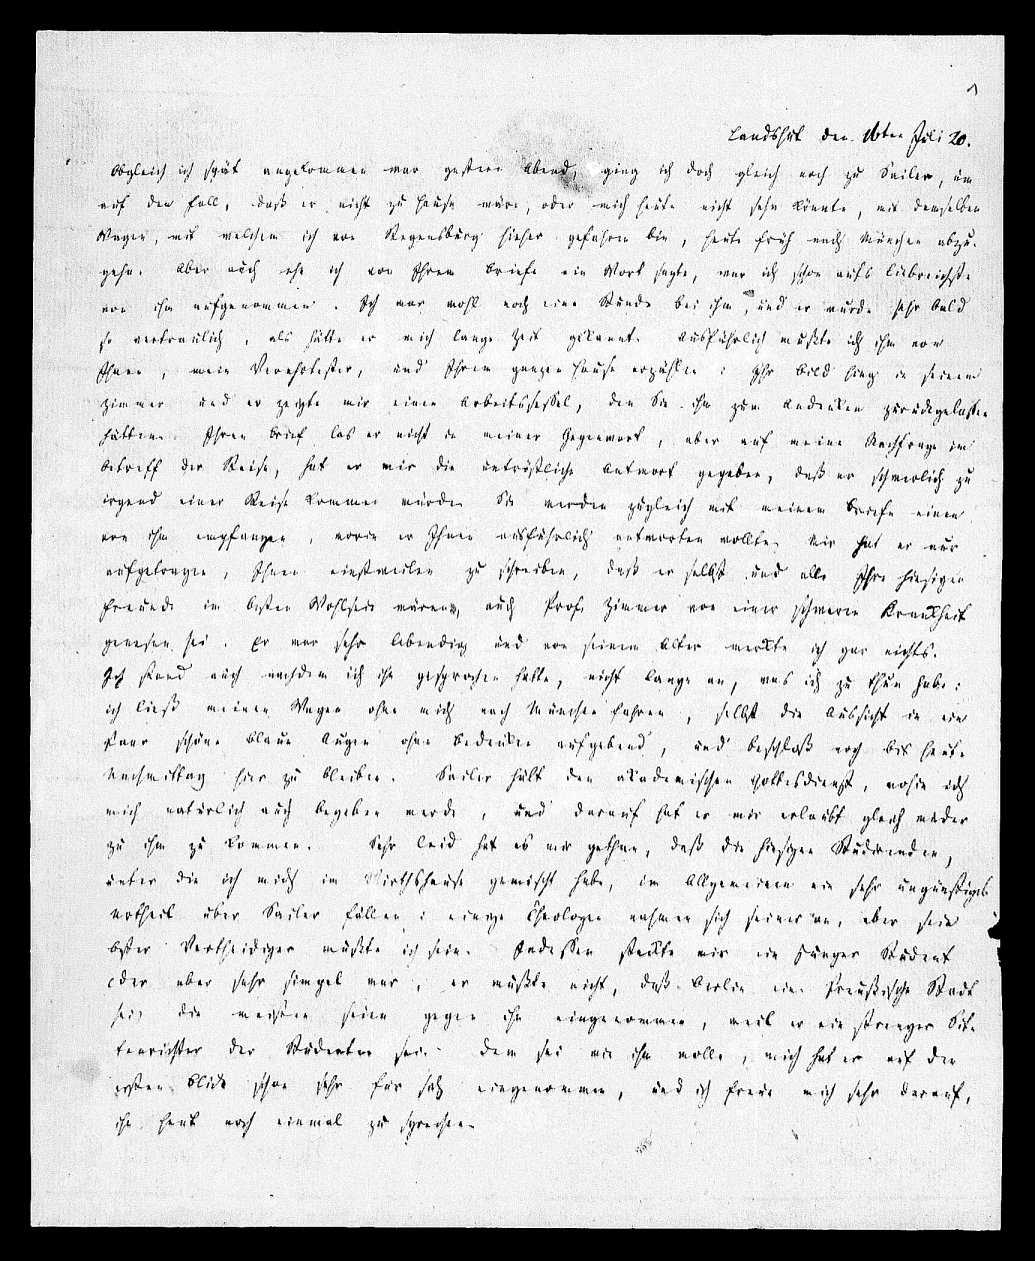 Landshut den 16ten Juli 20.
Obgleich ich spät angekommen war gestern Abend, ging ich doch gleich noch zu Sailer, um
auf den Fall, daß er nicht zu Hause wäre, oder mich heute nicht sehn könnte, mit demselben
Wagen, mit welchem ich von Regensburg hieher gefahren bin, heute früh nach München abzu-
gehn. Aber noch ehe ich von Ihrem Briefe ein Wort sagte, war ich schon aufs liebreichste
von ihm aufgenommen. Ich war wohl noch eine Stunde bei ihm, und er wurde sehr bald
so vertraulich, als hätte er mich lange Zeit gekannt. Ausführlich mußte ich ihm von
Ihnen, mein Verehrtester, und Ihrem ganzen Hause erzählen: Ihr Bild hing in seinem
Zimmer und er zeigte mir einen Arbeitssessel, den Sie ihm zum Andenken zurückgelassen
hätten. Ihren Brief las er nicht in meiner Gegenwart, aber auf meine Nachfrage im
Betreff der Reise, hat er mir die untröstliche Antwort gegeben, daß er schwerlich zu
irgend einer Reise kommen würde. Sie werden zugleich mit meinem Briefe einen
von ihm empfangen, worin er Ihnen ausführlich antworten wollte. Mir hat er nur
aufgetragen, Ihnen einstweilen zu schreiben, daß er selbst und alle Ihre hiesigen
Freunde im besten Wohlsein wären, auch Prof. Zimmer von einer schweren Krankheit
genesen sei. Er war sehr lebendig und von seinem Alter merkte ich gar nichts.
Ich stand auch nachdem ich ihn gesprochen hatte, nicht lange an, was ich zu thun habe:
ich ließ meinen Wagen ohne mich nach München fahren, selbst die Aussicht in ein
Paar schöne blaue Augen ohne Bedenken aufgebend, und beschloß noch bis heute
Nachmittag hier zu bleiben. Sailer hält den akademischen Gottesdienst, wohin ich
mich natürlich auch begeben werde, und darauf hat er mir erlaubt gleich wieder
zu ihm zu kommen. Sehr leid hat es mir gethan, daß die hiesigen Studirenden,
unter die ich mich im Wirthshause gemischt habe, im Allgemeinen ein sehr ungünstiges
Urtheil über Sailer fällen: einige Theologen nahmen sich seiner an, aber sein
bester Vertheidiger mußte ich sein. Indessen steckte mir ein junger Student
(der aber sehr simpel war, er wußte nicht, daß Berlin eine Preußische Stadt
sei) die meisten seien gegen ihn eingenommen, weil er ein strenger Sit-
tenrichter der Studenten sei. Dem sei wie ihm wolle, mich hat er auf den
ersten Blick schon sehr für sich eingenommen, und ich freue mich sehr darauf,
ihn heut noch einmal zu sprechen.